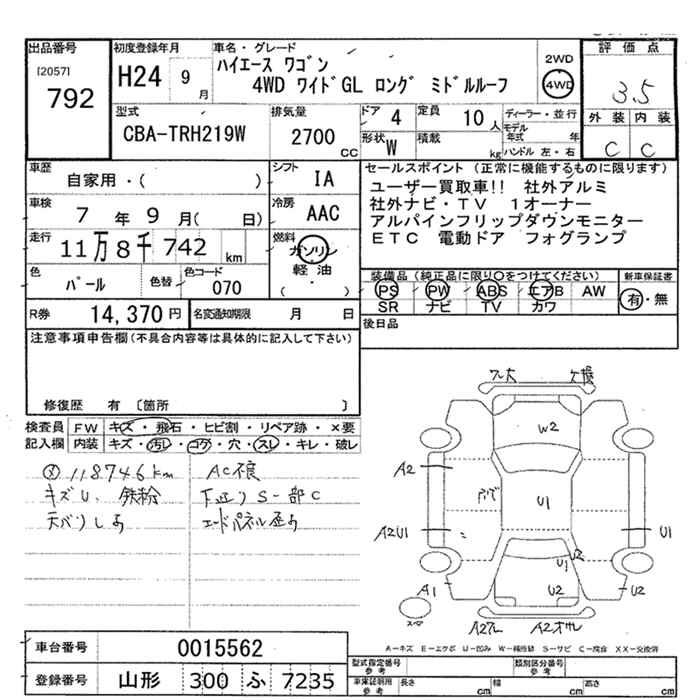 出品番号 初度登録年月 車名・グレード 評価点
[2057] 792
H24 9月
ハイエース ワゴン
4WD ワイドGL ロング ミドルルーフ
2WD
4WD
3.5
外装 内装
C C
型式 排気量 ドア 4 定員 10人 ディーラー・並行
CBA-TRH219W 2700cc
モデル年式 年
形状 W 積載 kg ハンドル 左・右
車歴 自家用・( )
シフト IA
車検 7年9月( 日)
冷房 AAC
走行 11万8千742km
燃料 ガソリン 軽油 ( )
色 パール 色替 色コード 070
R券 14,370円 名変通知期限 月 日
セールスポイント(正常に機能するものに限ります)
ユーザー買取車!! 社外アルミ
社外ナビ・TV 1オーナー
アルパインフリップダウンモニター
ETC 電動ドア フォグランプ
装備品(純正品に限り○をつけてください) 新車保証書
PS PW ABS エアB AW 有・無
SR ナビ TV カワ
後日品
注意事項申告欄(不具合内容等は具体的に記入して下さい)
修復歴 有 〔箇所 〕
検査員 FW キズ・飛石・ヒビ割・リペア跡・×要
記入欄 内装 キズ・汚レ・コゲ・穴・スレ・キレ・破レ
118746km AC不良
キズU、鉄粉
W2
A2 U1
A2U1 U1
U2
U1
A1 U2 U2
A2
A2
A=キズ E=エクボ U=凹み W=補修跡 S=サビ C=腐食 XX=交換済
車台番号 0015562
登録番号 山形 300 ふ 7235
型式指定番号 参考 類別区分番号 参考
車庫証明用 参考 長さ cm 幅 cm 高さ cm